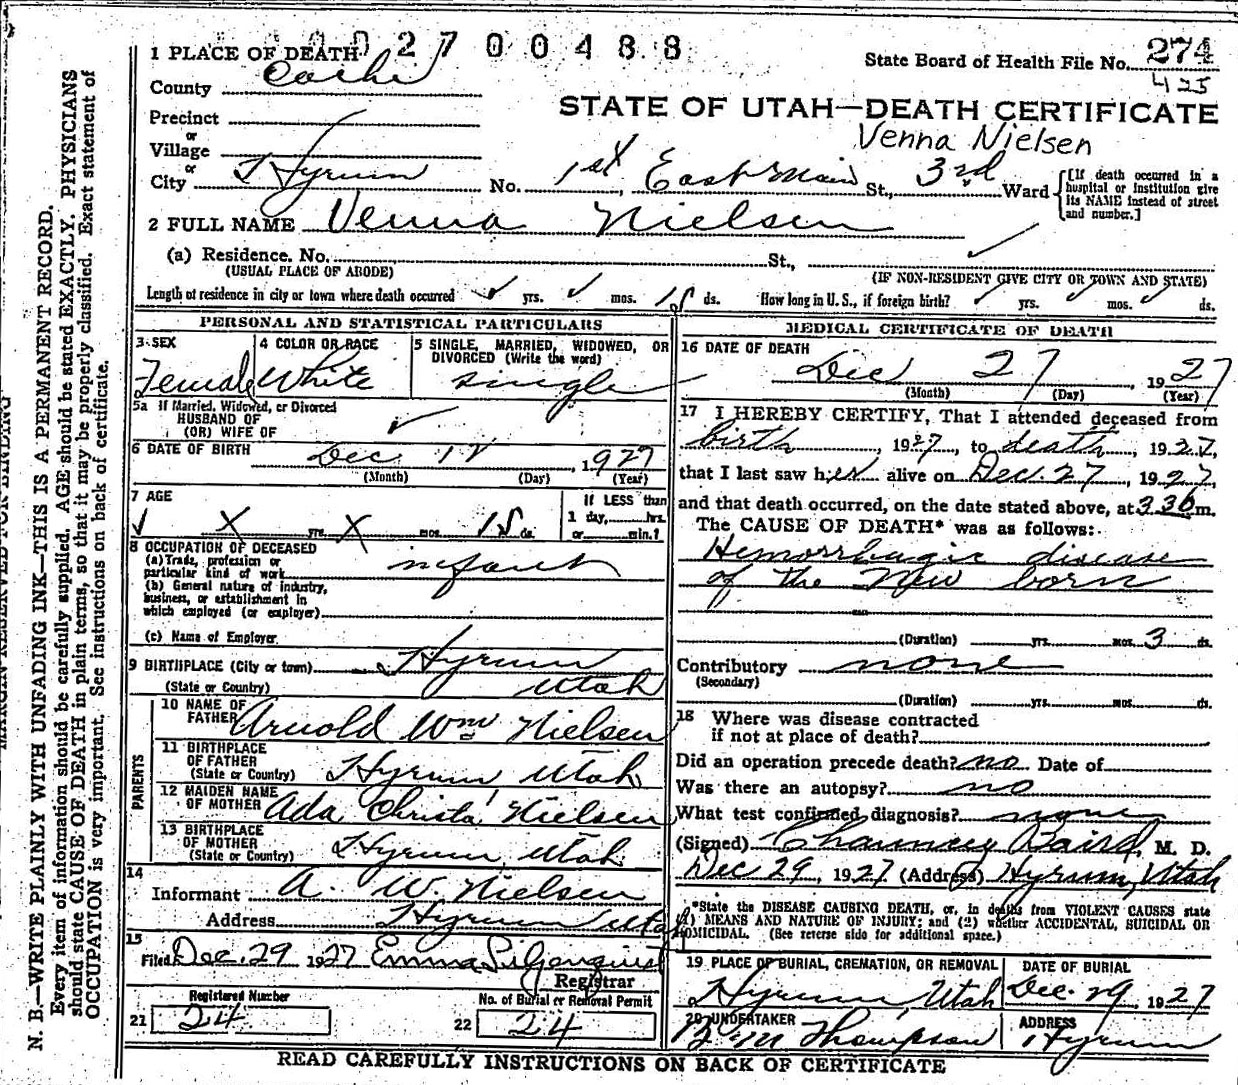 002700488
State Board of Health File No. 274
425
STATE OF UTAH—DEATH CERTIFICATE
Venna Nielsen
1 PLACE OF DEATH
County Cache
Precinct
or
Village
or
City Hyrum No. 1st East Main St., 3rd Ward
[If death occurred in a hospital or institution give its NAME instead of street and number.]
2 FULL NAME Venna Nielsen
(a) Residence. No. St.,
(USUAL PLACE OF ABODE) (IF NON-RESIDENT GIVE CITY OR TOWN AND STATE)
Length of residence in city or town where death occurred yrs. mos. ds. How long in U. S., if foreign birth? yrs. mos. ds.
PERSONAL AND STATISTICAL PARTICULARS
3 SEX
Female
4 COLOR OR RACE
White
5 SINGLE, MARRIED, WIDOWED, OR DIVORCED (Write the word)
single
5a If Married, Widowed, or Divorced
HUSBAND OF
(OR) WIFE OF
6 DATE OF BIRTH Dec. 1927
(Month) (Day) (Year)
7 AGE
X yrs. X mos. ds.
If LESS than
1 day, hrs.
or min.?
8 OCCUPATION OF DECEASED
(a) Trade, profession or
particular kind of work infant
(b) General nature of industry,
business, or establishment in
which employed (or employer)
(c) Name of Employer
9 BIRTHPLACE (City or town) Hyrum
(State or Country) Utah
PARENTS
10 NAME OF
FATHER Arnold Wm Nielsen
11 BIRTHPLACE
OF FATHER
(State or Country) Hyrum Utah
12 MAIDEN NAME
OF MOTHER Ada Christa Nielsen
13 BIRTHPLACE
OF MOTHER
(State or Country) Hyrum, Utah
14
Informant A. W. Nielsen
Address Hyrum Utah
15
Filed Dec. 29 1927 Emma
Registrar
Registered Number
21 24
No. of Burial or Removal Permit
22 24
MEDICAL CERTIFICATE OF DEATH
16 DATE OF DEATH
Dec 27, 1927
(Month) (Day) (Year)
17 I HEREBY CERTIFY, That I attended deceased from
birth, 1927, to death, 1927,
that I last saw her alive on Dec. 27, 1927,
and that death occurred, on the date stated above, at 330 m.
The CAUSE OF DEATH* was as follows:
Hemorrhagic disease
of the New born
(Duration) yrs. mos. 3 ds.
Contributory none
(Secondary)
(Duration) yrs. mos. ds.
18 Where was disease contracted
if not at place of death?
Did an operation precede death? no Date of
Was there an autopsy? no
What test confirmed diagnosis?
(Signed) Chauncey Baird, M. D.
Dec 29, 1927 (Address) Hyrum, Utah
*State the DISEASE CAUSING DEATH, or, in deaths from VIOLENT CAUSES state
(1) MEANS AND NATURE OF INJURY; and (2) whether ACCIDENTAL, SUICIDAL OR
HOMICIDAL. (See reverse side for additional space.)
19 PLACE OF BURIAL, CREMATION, OR REMOVAL
Hyrum, Utah
DATE OF BURIAL
Dec. 29, 1927
20 UNDERTAKER
Thompson
ADDRESS
Hyrum
READ CAREFULLY INSTRUCTIONS ON BACK OF CERTIFICATE
MARGIN RESERVED FOR BINDING
N. B.—WRITE PLAINLY WITH UNFADING INK—THIS IS A PERMANENT RECORD.
Every item of information should be carefully supplied. AGE should be stated EXACTLY. PHYSICIANS
should state CAUSE OF DEATH in plain terms, so that it may be properly classified. Exact statement of
OCCUPATION is very important. See instructions on back of certificate.